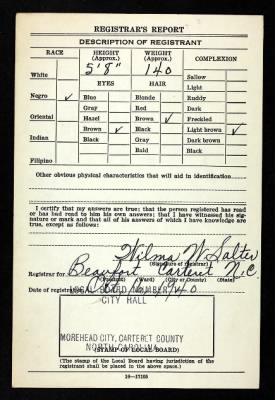 REGISTRAR'S REPORT
DESCRIPTION OF REGISTRANT
RACE
HEIGHT (Approx.)
WEIGHT (Approx.)
COMPLEXION
5' 8"
140
White
Sallow
EYES
HAIR
Light
Negro ✓
Blue
Blonde
Ruddy
Gray
Red
Dark
Oriental
Hazel
Brown ✓
Freckled
Brown ✓
Black
Light brown ✓
Indian
Black
Gray
Dark brown
Bald
Black
Filipino
Other obvious physical characteristics that will aid in identification
I certify that my answers are true; that the person registered has read
or has had read to him his own answers; that I have witnessed his signature
or mark and that all of his answers of which I have knowledge are
true, except as follows:
Wilma W Salter
(Signature of registrar)
Registrar for Beaufort Carteret N.C.
(Precinct) (Ward) (City or County) (State)
Date of registration
LOCAL BOARD NUMBER 1
CITY HALL
MOREHEAD CITY, CARTERET COUNTY
NORTH CAROLINA
(STAMP OF LOCAL BOARD)
(The stamp of the Local Board having jurisdiction of the registrant
shall be placed in the above space.)
16—17105